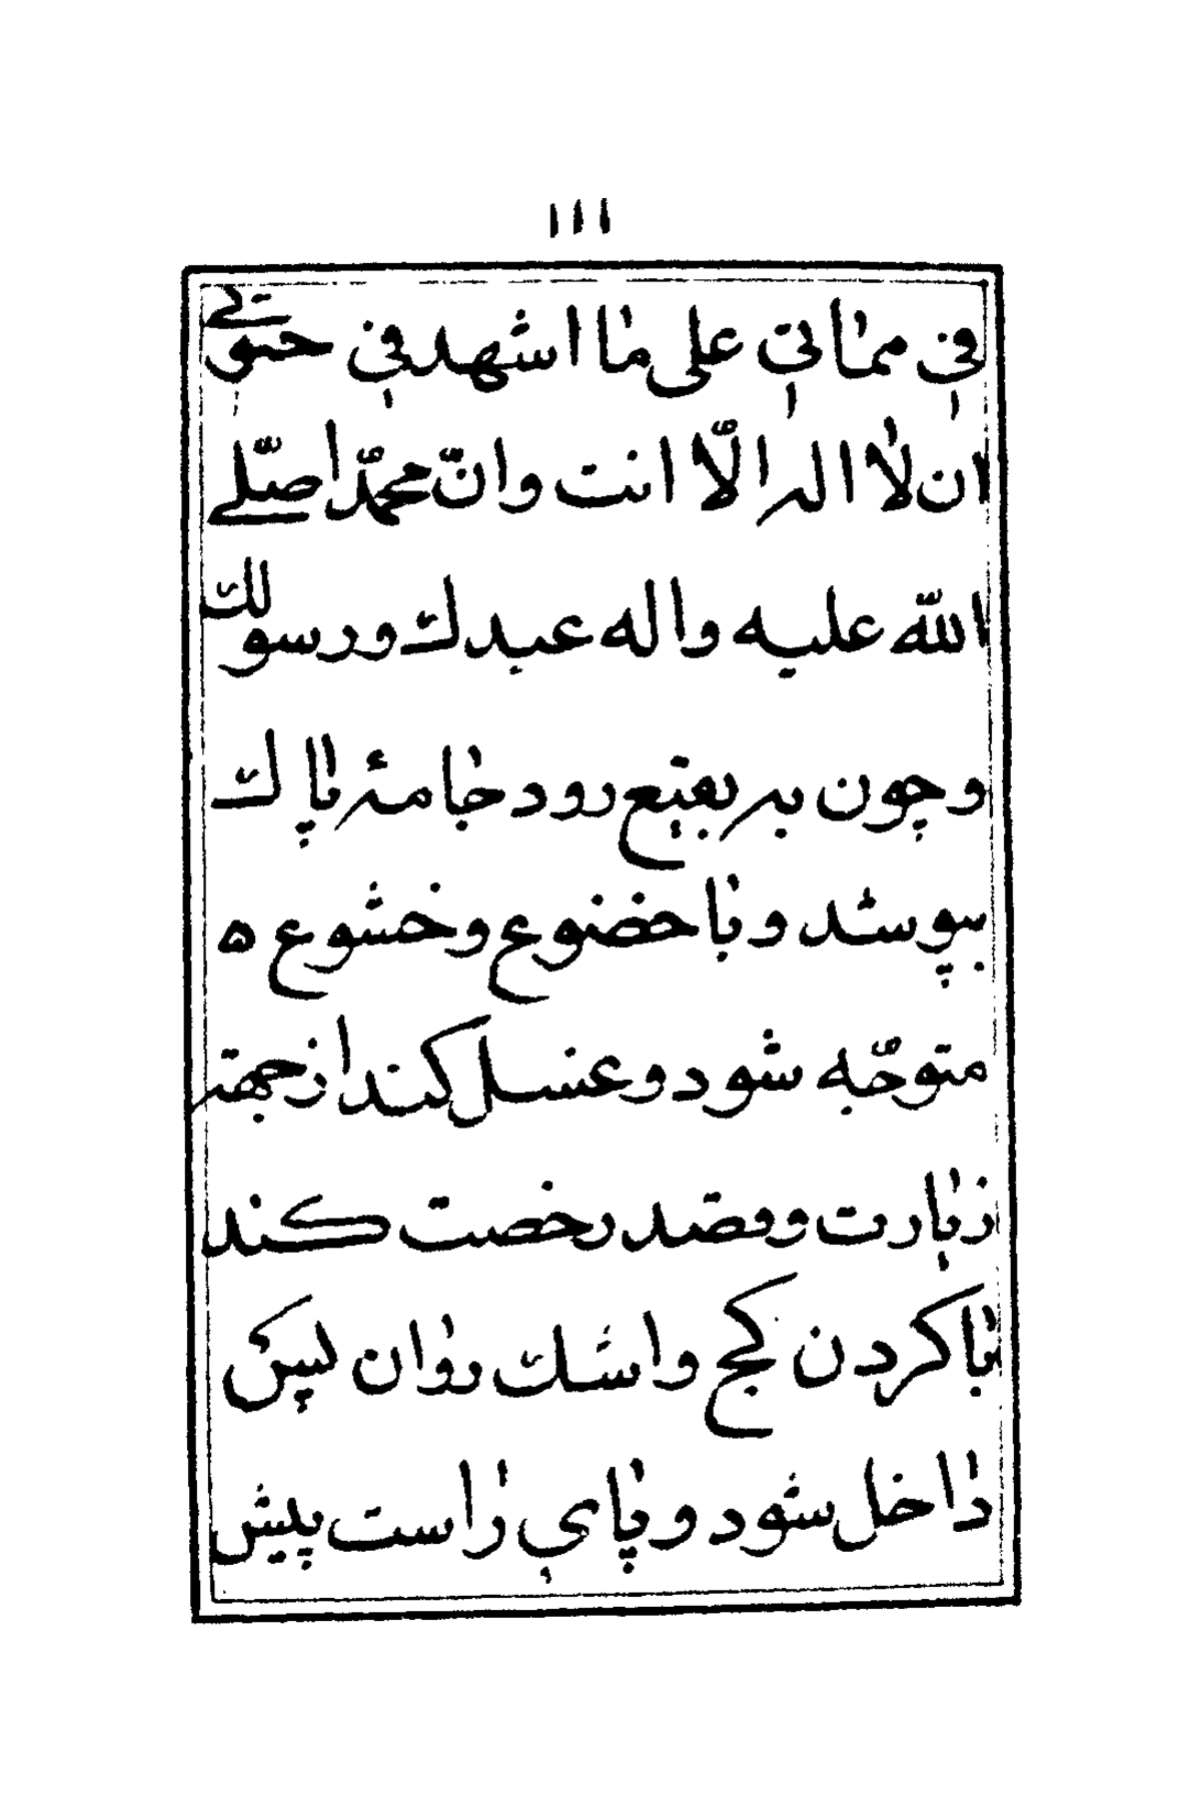 ١١١
في مماتي على ما اشهد في حيوتي
ان لا اله الّا انت وانّ محمّدا صلّى
اللّه عليه واله عبدك ورسولك
وچون به بقيع رود جامۀ پاك
بپوشد وبا خضوع وخشوع ه
متوجّه شود وغسل كند از جهة
زيارت وقصد رخصت كند
با كردن كج واشك روان پس
داخل شود وپاي راست پيش